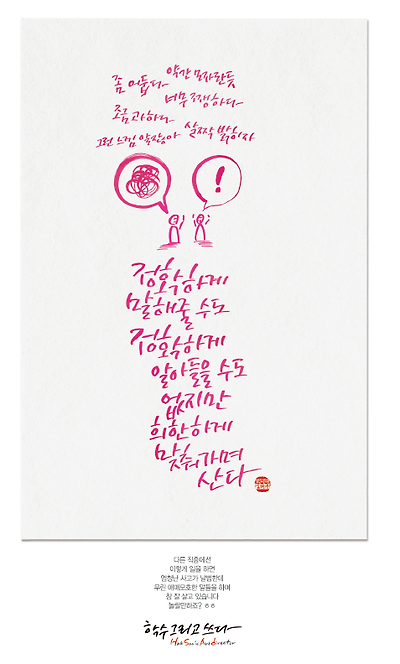 좀 어둡다 약간 모자란듯
너무 쨍하다
조금 과하다
그런 느낌 알잖아 살짝 밝히자
!
정확하게
말해줄 수도
정확하게
알아들을 수도
없지만
희한하게
맞춰가며
산다
다른 직종에선
이렇게 일을 하면
엄청난 사고가 남발한데
우린 애매모호한 말들을 하며
참 잘 살고 있습니다
놀랄만하죠? ㅎㅎ
학수 그리고 쓰다
Hak Soo's Art director